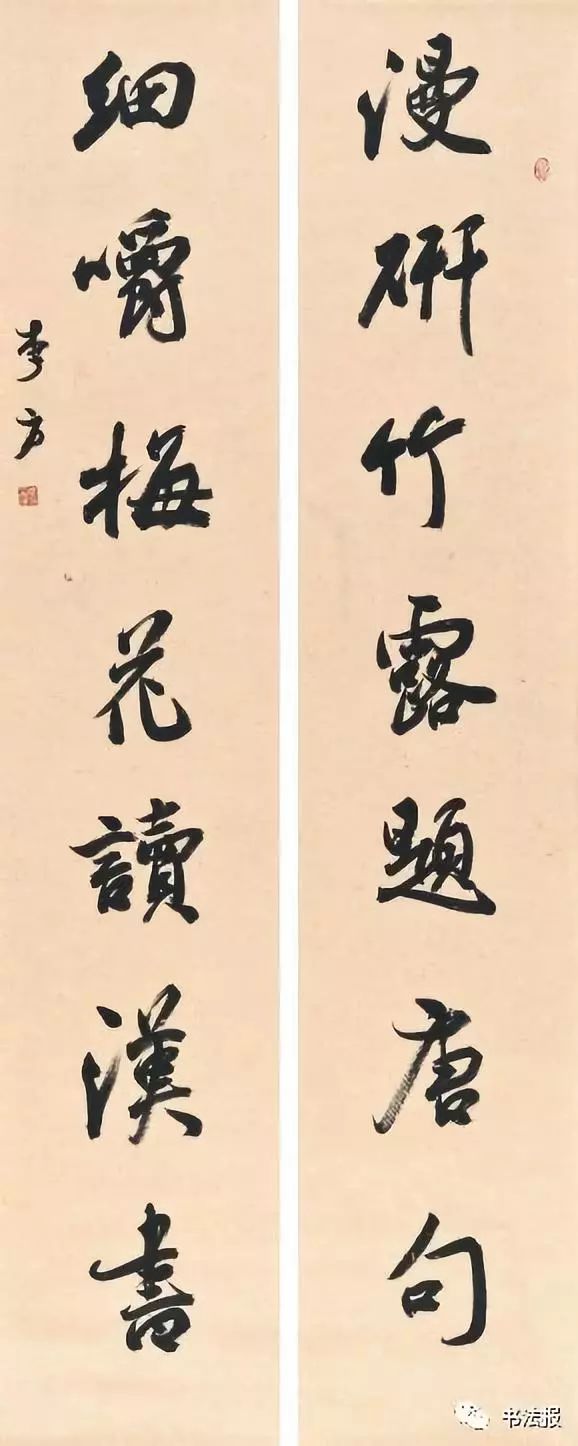 漫研竹露題唐句
細嚼梅花讀漢書
李方
书法报